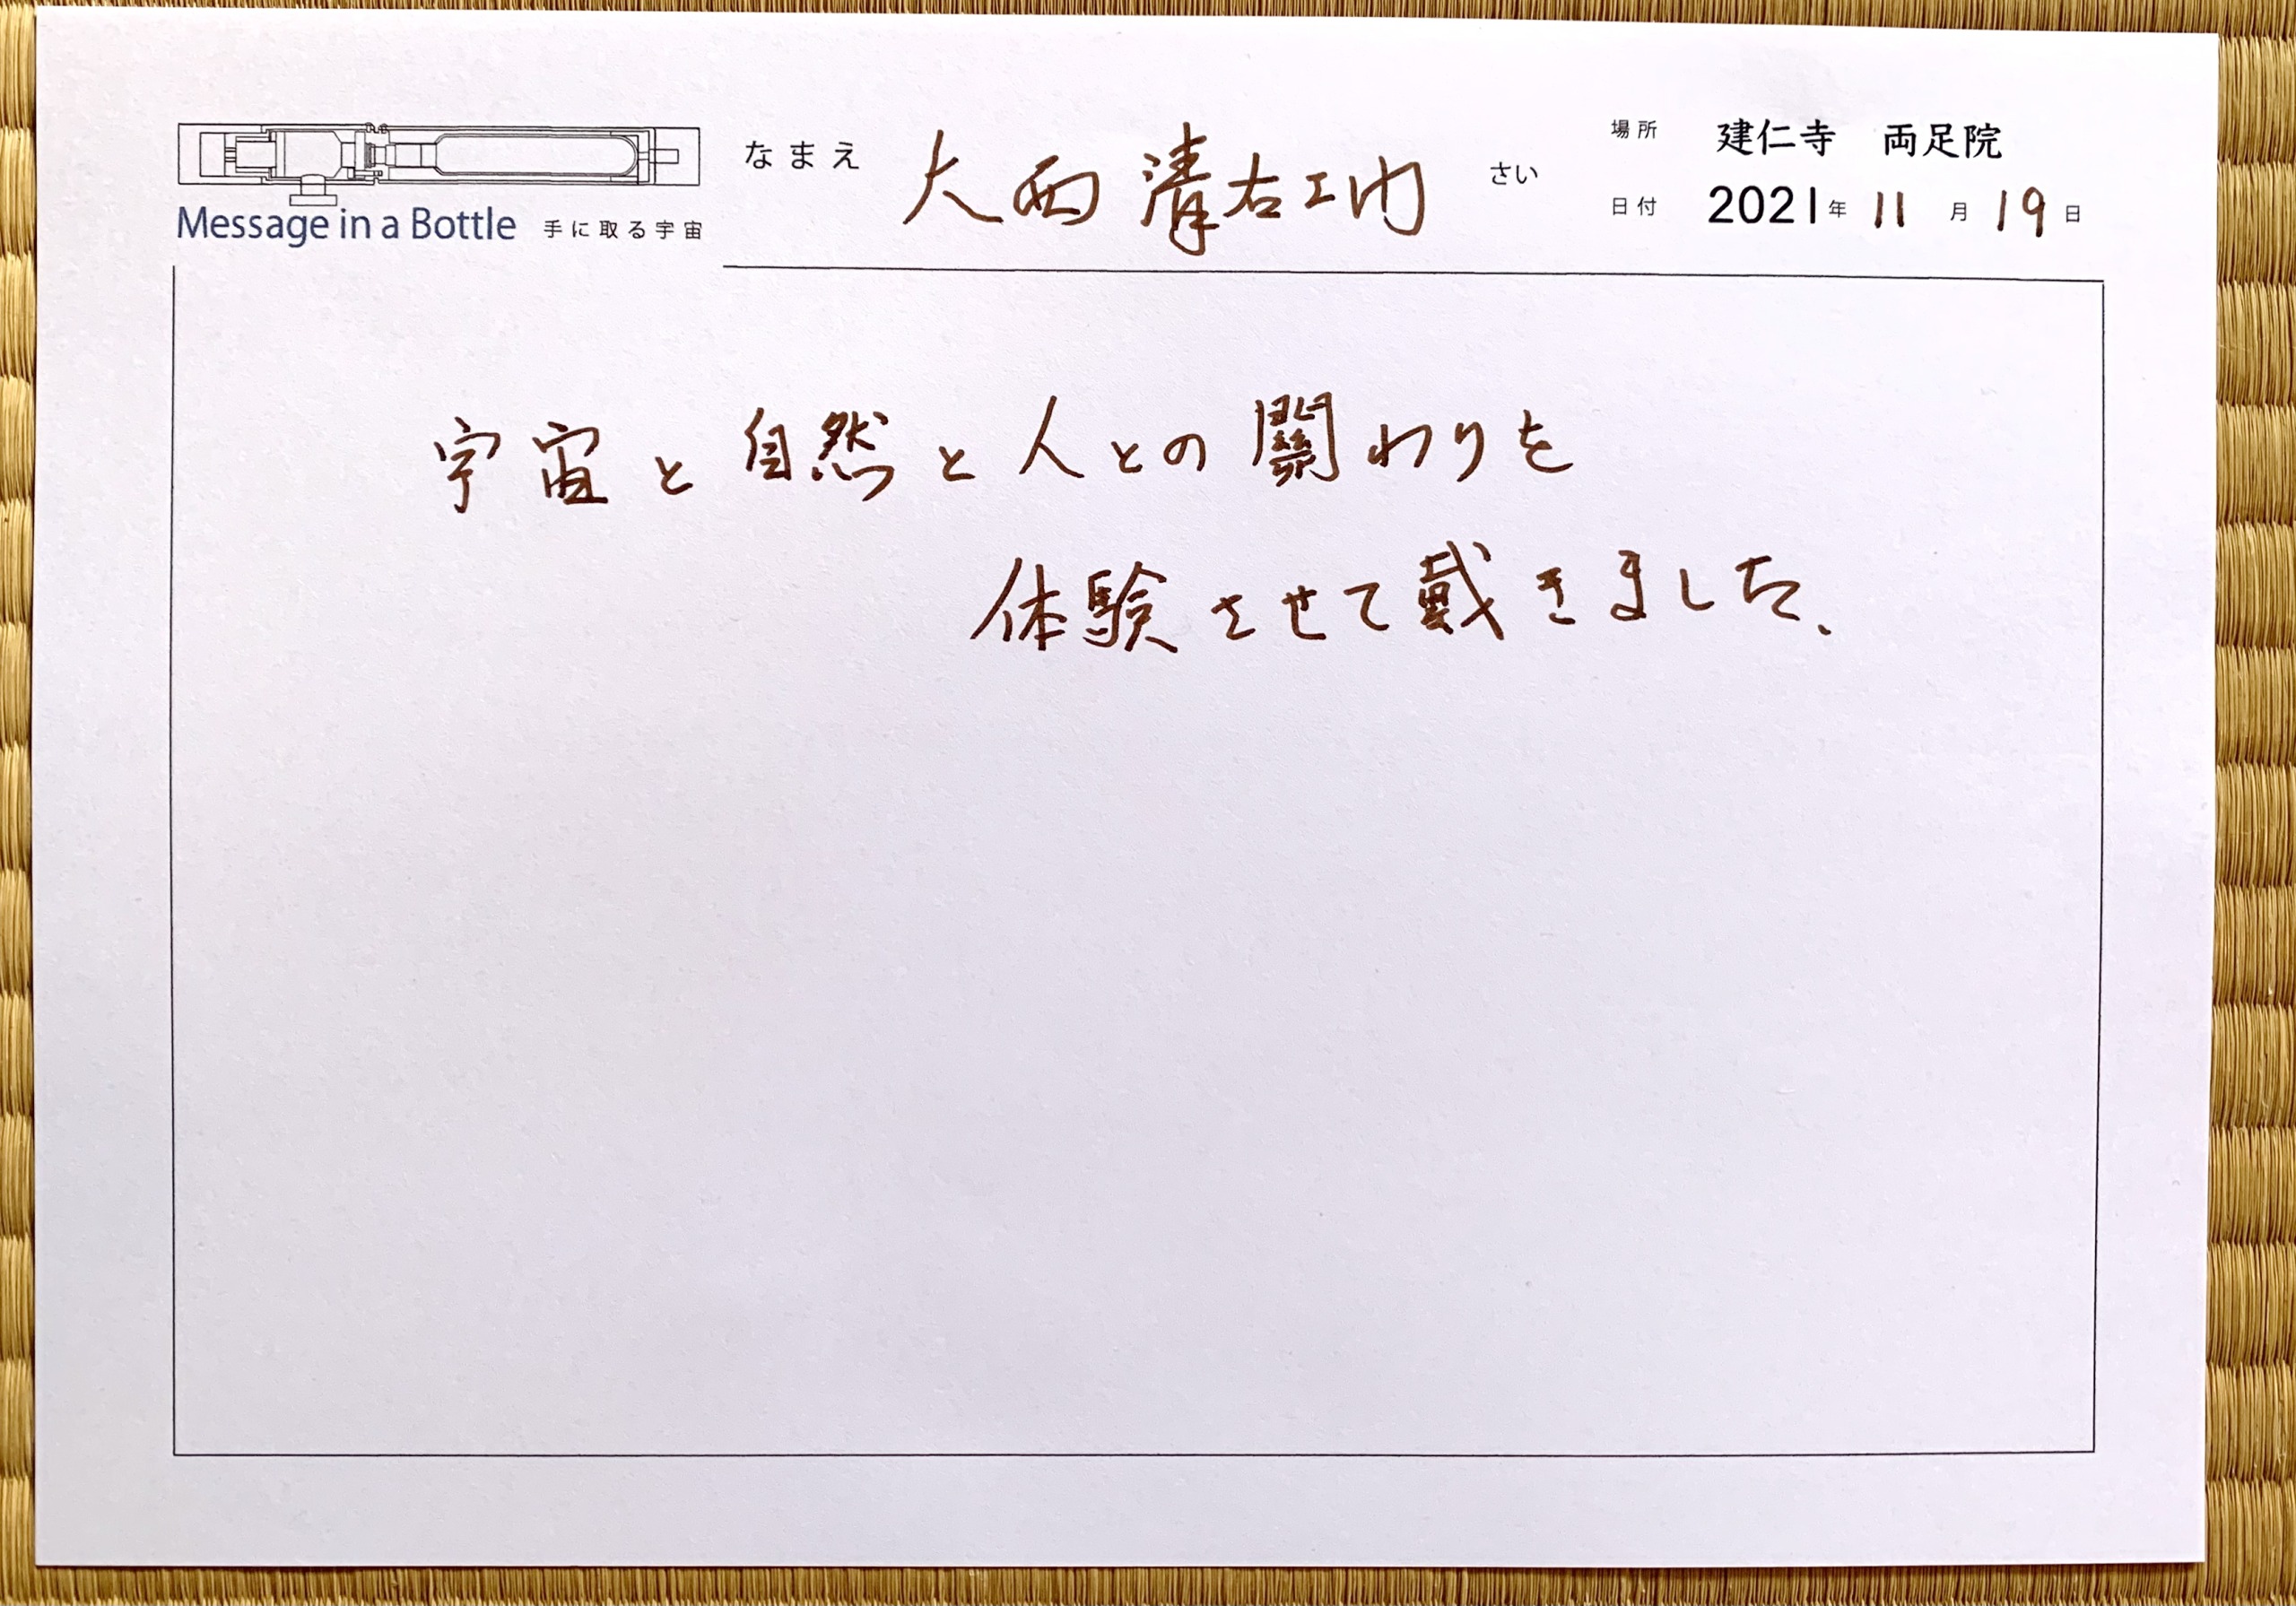 なまえ 大西 清右エ門 さい
場所 建仁寺 両足院
Message in a Bottle 手に取る宇宙
日付 2021年 11月 19日
宇宙と自然と人との關わりを
体験させて戴きました、